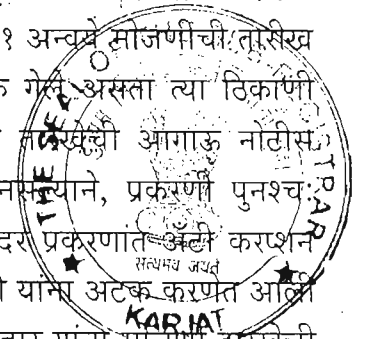 १ अन्वये मोजणीची तारीख
क गेले असता त्या ठिकाणी
तारखेची आगाऊ नोटीस
नसल्याने, प्रकरणी पुनश्च
दर प्रकरणांत अँटी करप्शन
यांना अटक करणेत आली
THE SEAL O
TRAR
सत्यमेव जयते
KARJAT